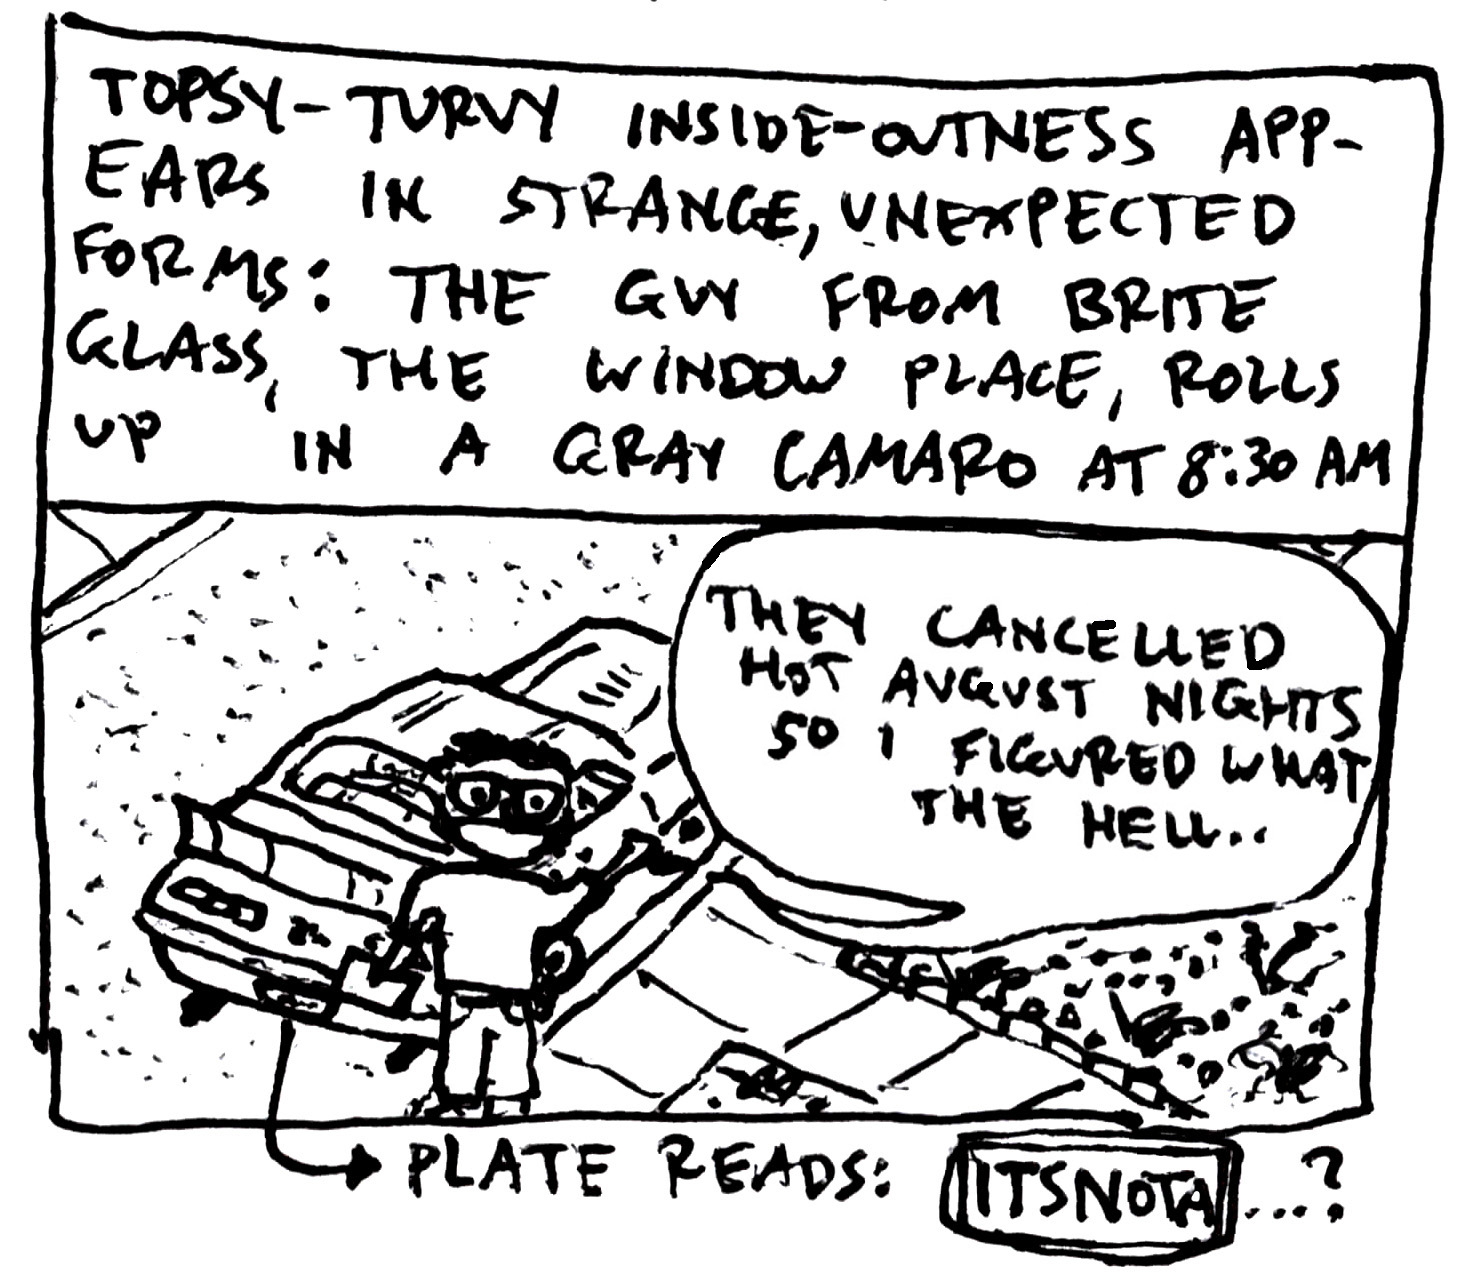 TOPSY-TURVY INSIDE-OUTNESS APP-
EARS IN STRANGE, UNEXPECTED
FORMS: THE GUY FROM BRITE
GLASS, THE WINDOW PLACE, ROLLS
UP IN A GRAY CAMARO AT 8:30 AM
THEY CANCELLED
HOT AUGUST NIGHTS
SO I FIGURED WHAT
THE HELL..
PLATE READS: ITSNOTA ...?